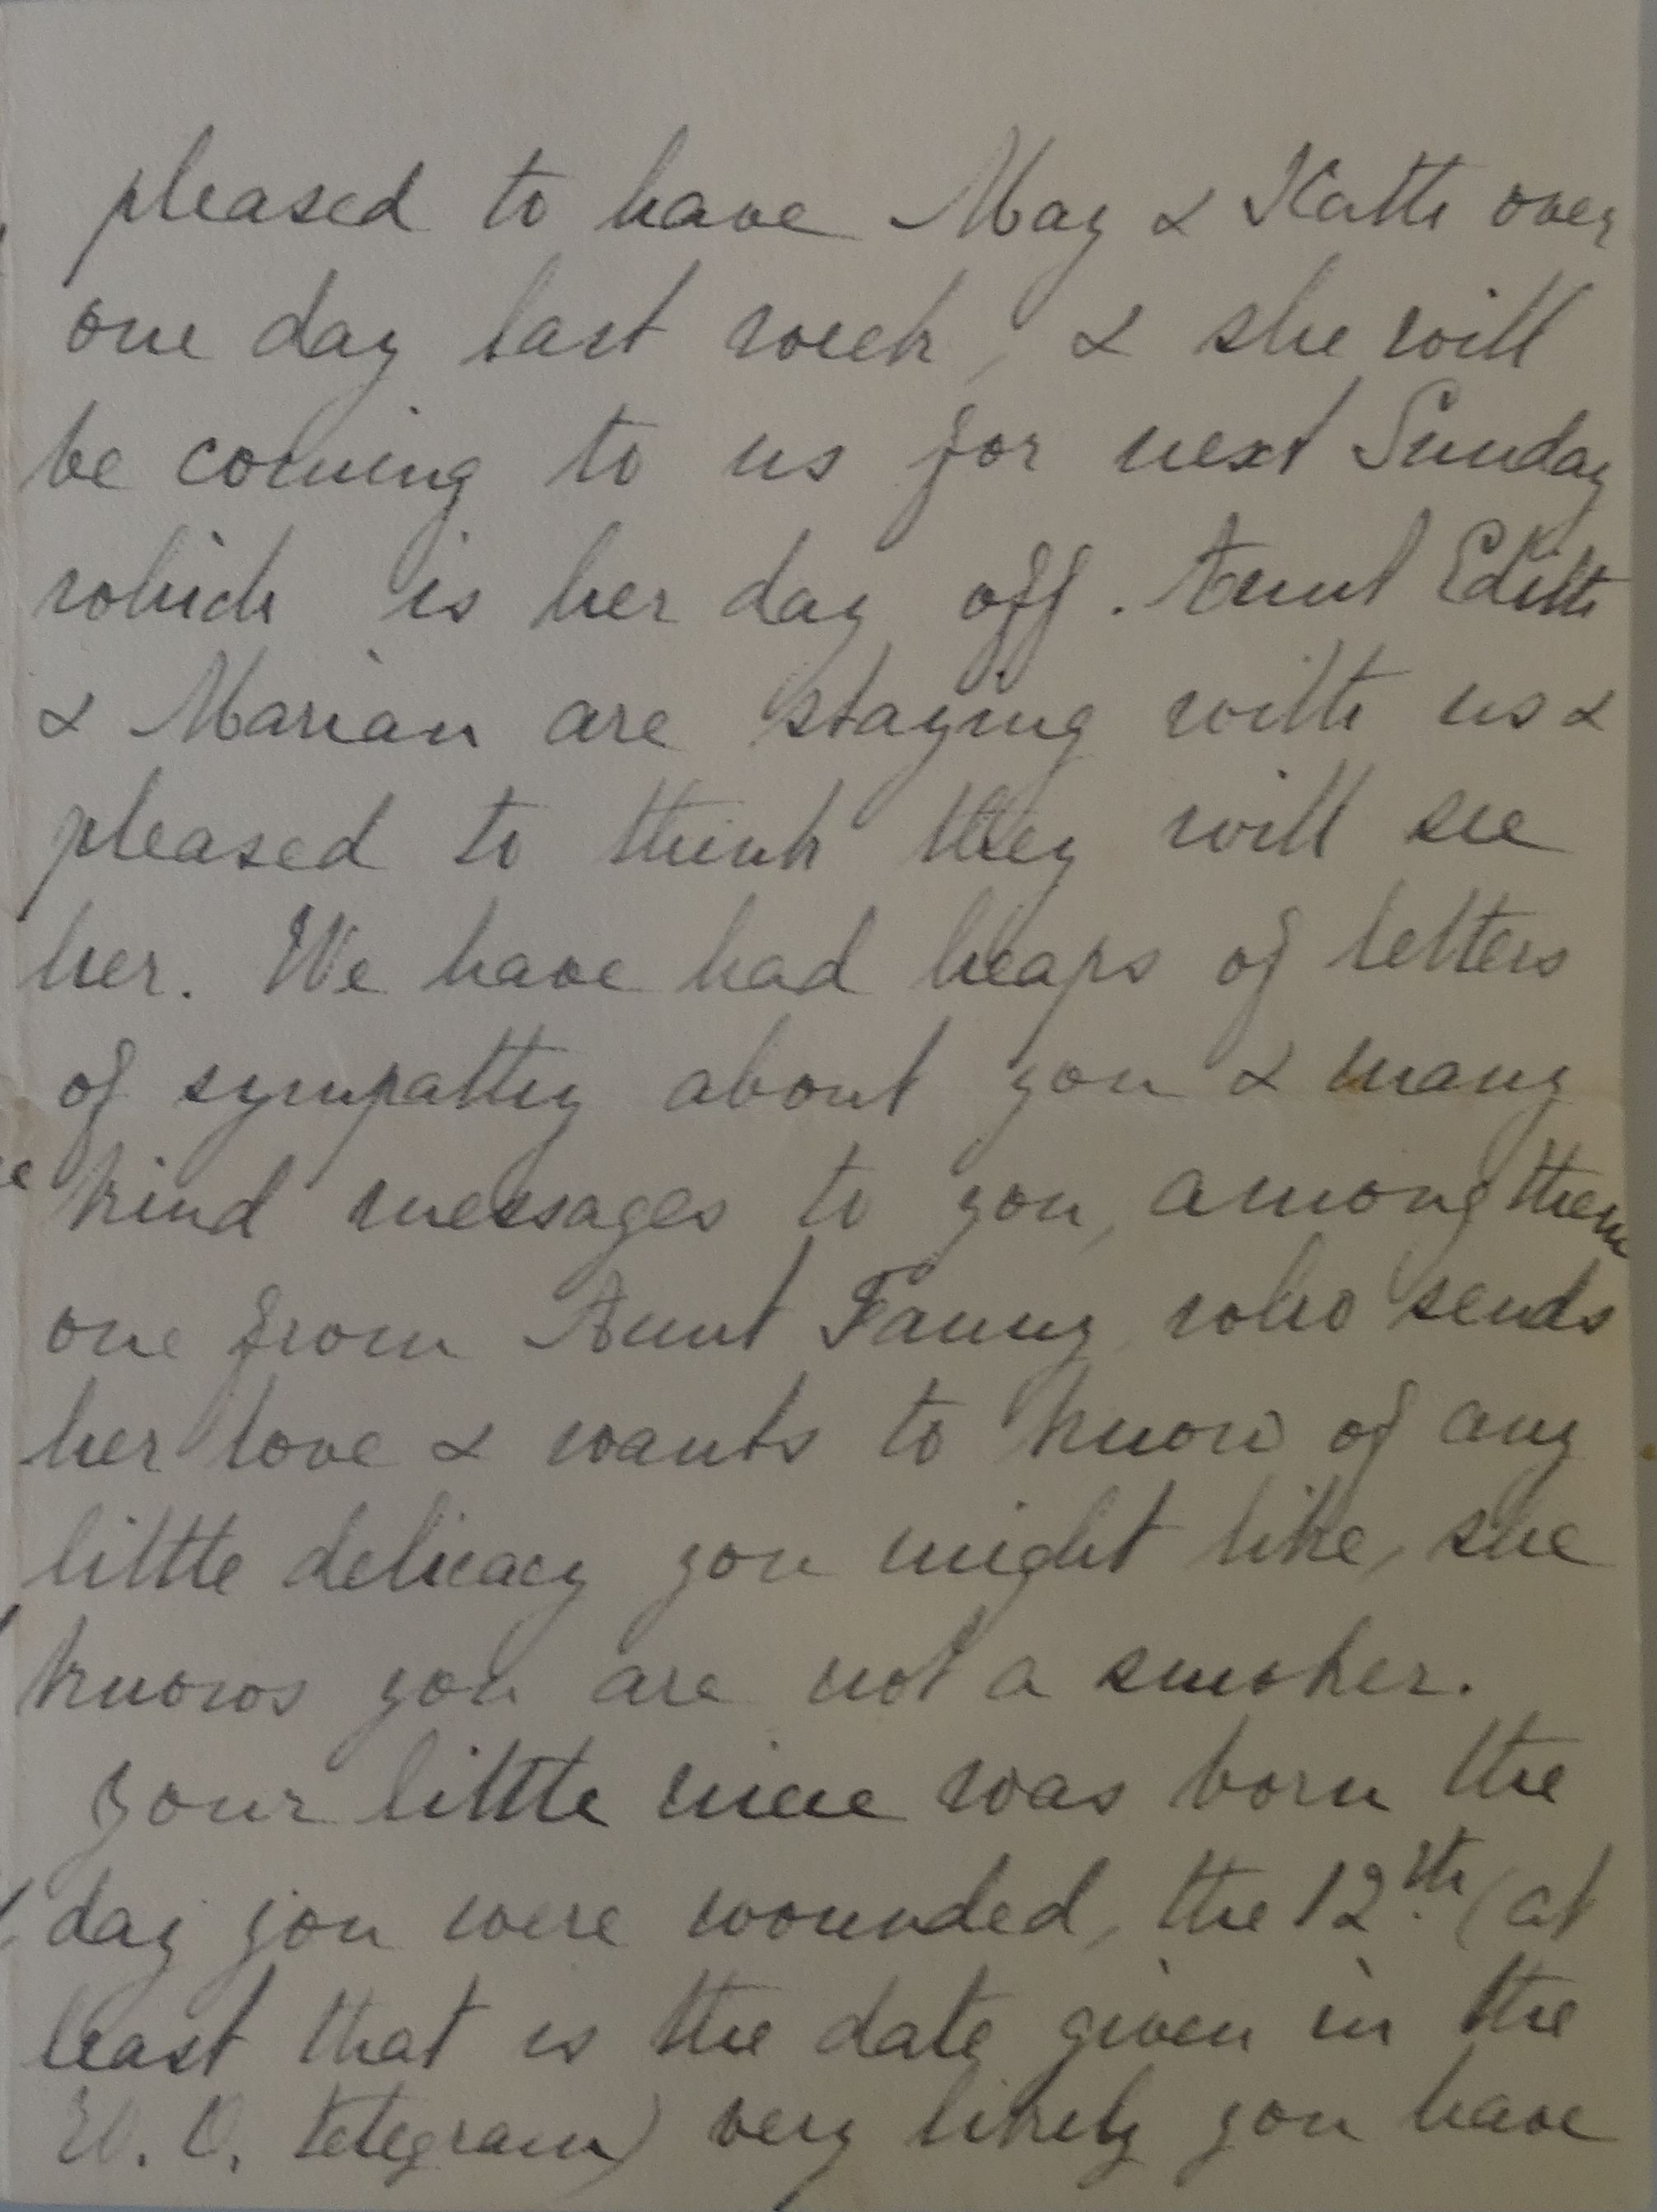 pleased to have May & Kath over
one day last week, & she will
be coming to us for next Sunday
which is her day off. Aunt Edith
& Marian are staying with us &
pleased to think they will see
her. We have had heaps of letters
of sympathy about you & many
kind messages to you, among them
one from Aunt Fanny, who sends
her love & wants to know of any
little delicacy you might like, she
knows you are not a smoker.
Your little niece was born the
day you were wounded, the 12th (at
least that is the date given in the
W. O. telegram) very likely you have